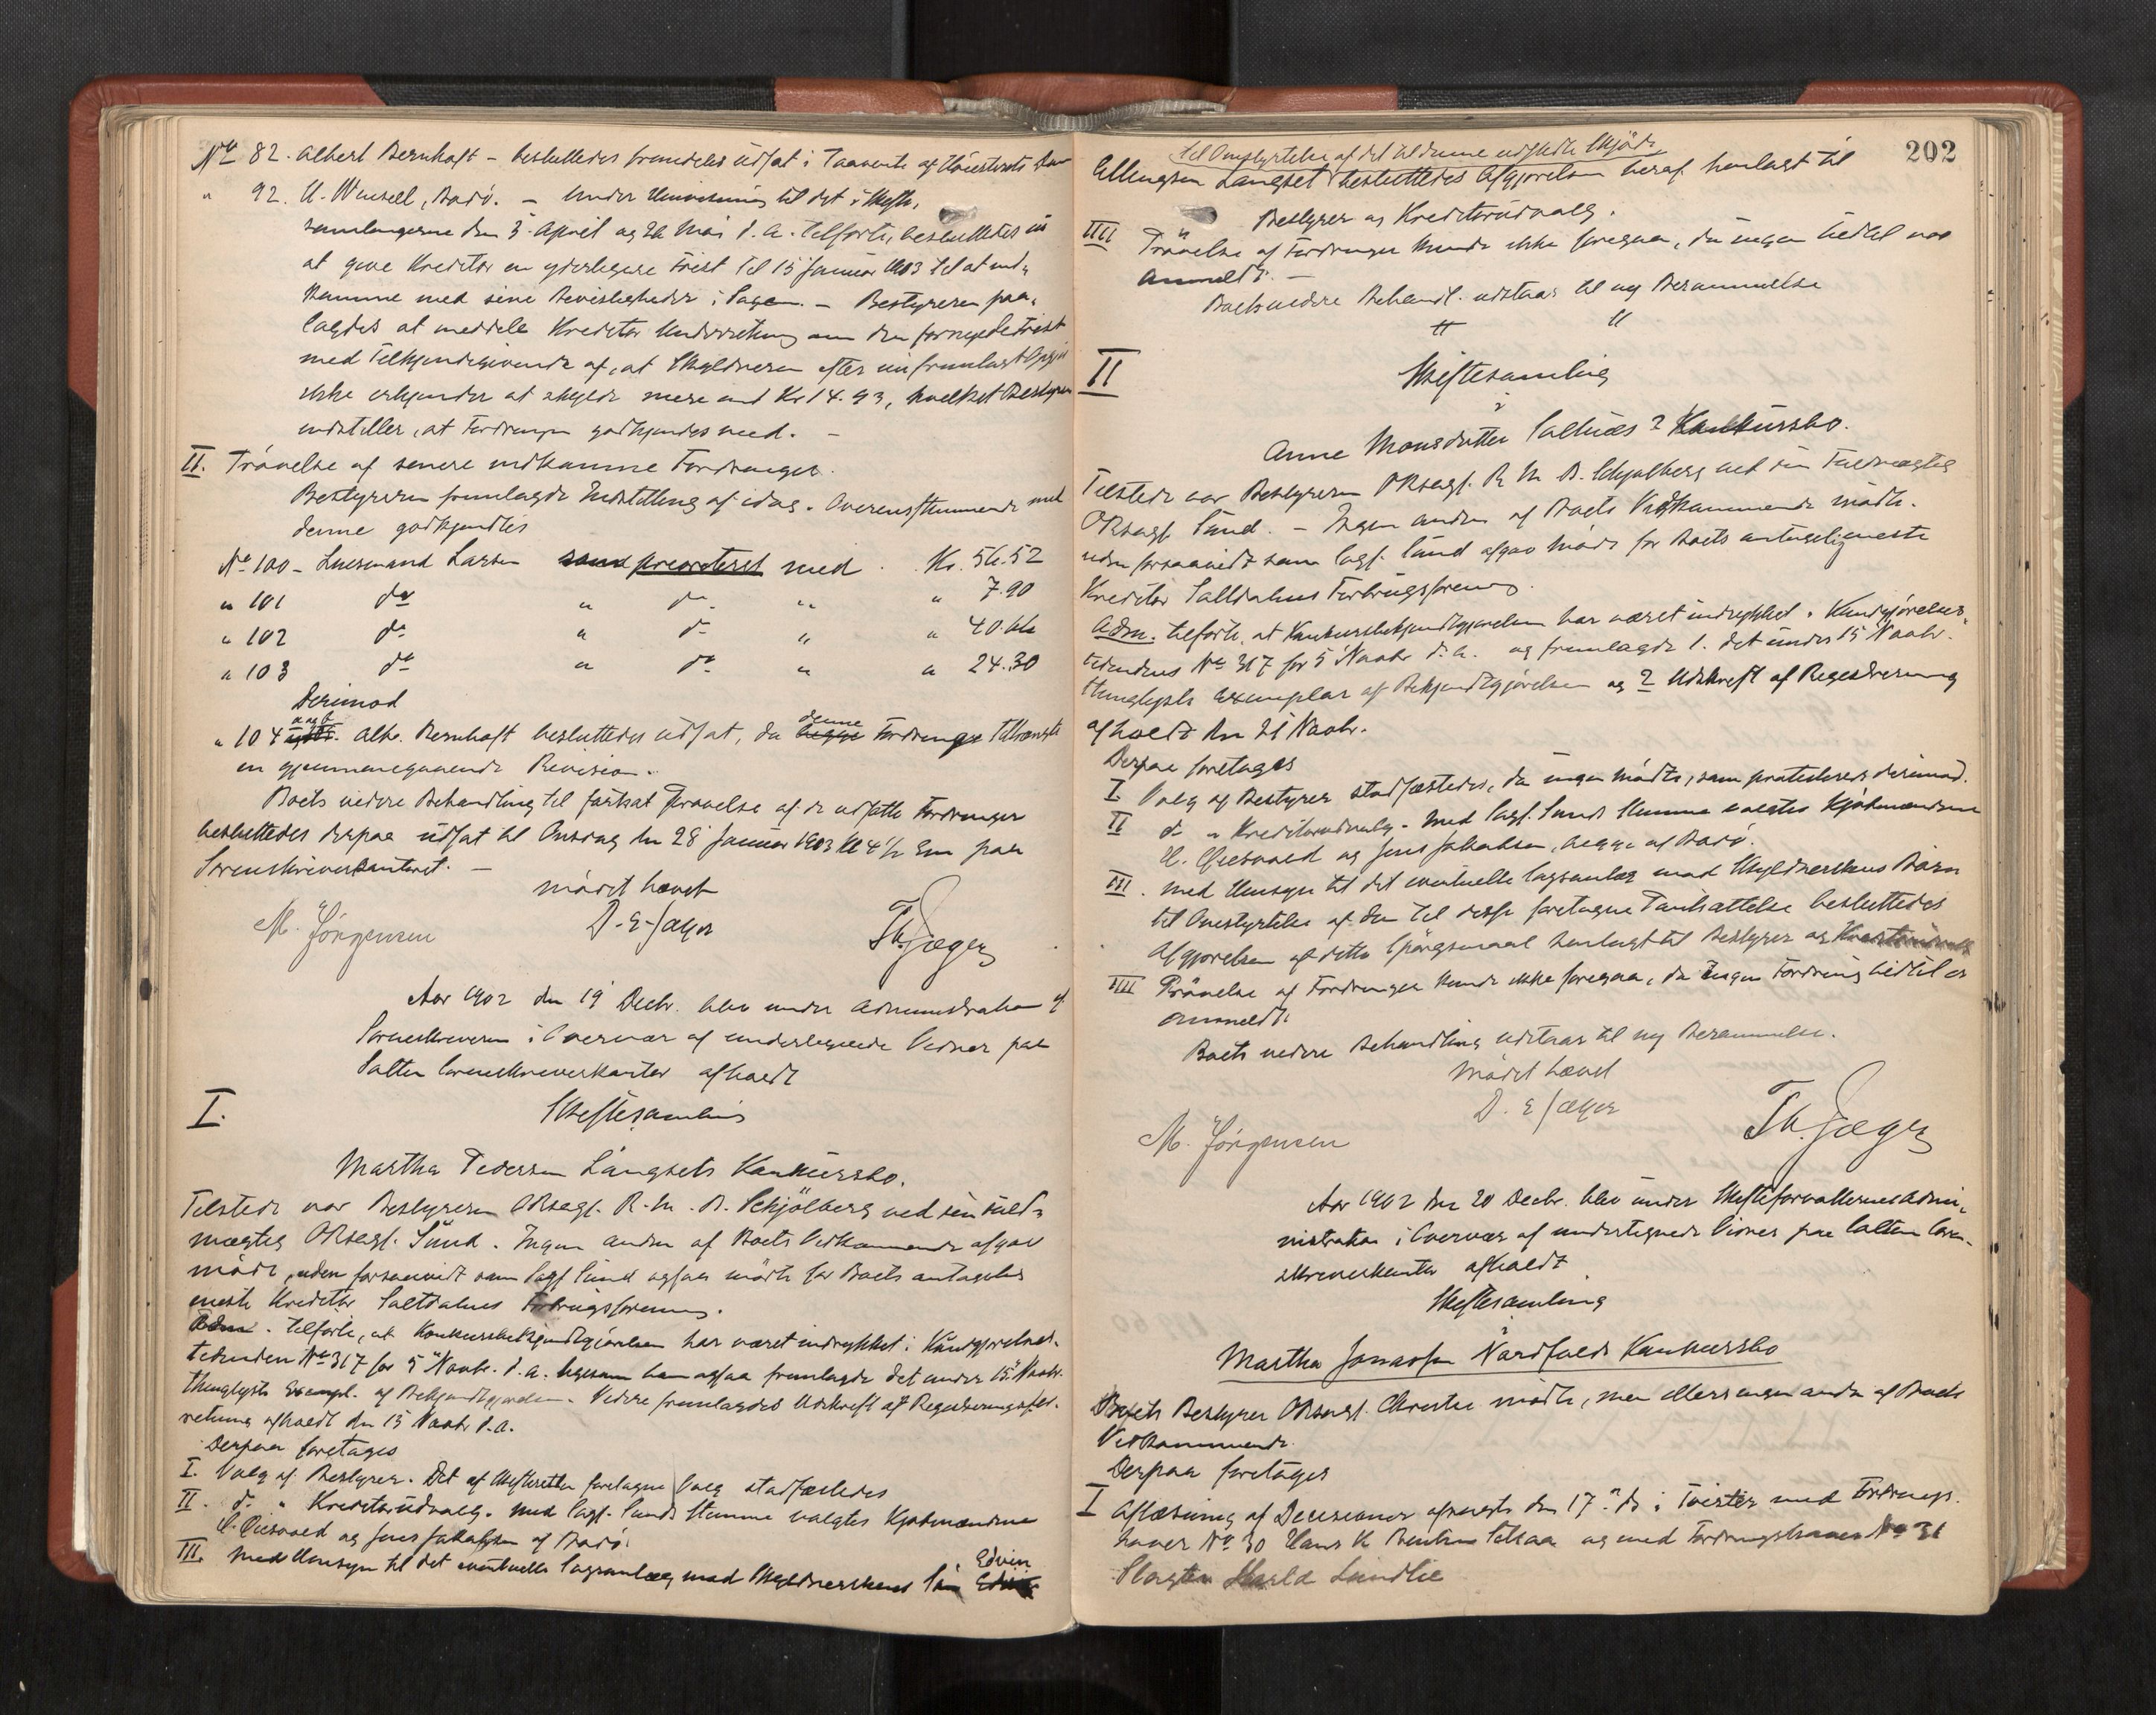 No 82. Albert Bernhoft - besluttedes fremdeles udsat i Paavente af Høiesterets Dom
" 92. U. Wensell, Bodø. - Under Henvisning til det i Skifte,
samlingerne den 3 April og 26 Mai d. A. tilførte, besluttedes nu
at give Kreditor en yderligere Frist til 15 Januar 1903 til at ind-
komme med sine Bevisligheder i Sagen. - Bestyreren paa,
lagdes at meddele Kreditor Underretning om den fornyede Frist
med Tilkjendegivende af, at Skyldneren efter nu fremlagt Opgjør
ikke erkjender at skylde mere end Kr 14.93, hvilket Bestyreren
indstiller, at Fordringen godkjendes med. -
II. Prøvelse af senere indkomne Fordringer.
Bestyreren fremlagde Indstilling af idag. Overensstemmende med
denne godkjendtes
No 100 - Lensmand Larsen som prioriteret med . Kr. 56.52
" 101 do " do " " 7.90
" 102 do " do " " 40.66
" 103 do " do " " 24.30
Derimod
a og b
denne
" 104 Alb. Bernhoft besluttedes udsat, da begge Fordringer tiltrænger
en gjennemgaaende Revision.
Boets videre Behandling til fortsat Prøvelse af de udsatte Fordringer
besluttedes derpaa udsat til Onsdag den 28 Januar 1903 Kl 4 1/2 Em paa
Sorenskriverkontoret. -
Mødet hævet
M. Jörgensen D. E. Jæger Th. Jæger
Aar 1902 den 19 Decbr. blev under Administration af
Sorenskriveren i Overvær af undertegnede Vidner paa
Salten Sorenskriverkontor afholdt
I. Skiftesamling
Martha Pedersen Langsets Konkursbo.
Tilstede var Bestyreren ORsagf. R. M. B. Schjölberg ved sin Fuld-
mægtig ORsagf. Sund. Ingen anden af Boets Vedkommende afgav
møde, uden forsaavidt som Sagf Sund ogsaa mødte for Boets antagelig
eneste Kreditor Saltdalens Forbrugsforening.
Adm. tilførte, at Konkursbekjendtgjørelsen har været indrykket i Kundgjørelses-
tidenden No 317 for 5 Novbr. d. A. ligesom han ogsaa fremlagde det under 15 Novbr.
thinglyste Exempl. af Bekjendtgjørelsen. Videre fremlagdes Udskrift af Registreringsfor-
retning afholdt den 15 Novbr d. A.
Derpaa foretages
I. Valg af Bestyrer. Det af Skifteretten foretagne Valg stadfæstedes
II. do " Kreditorudvalg. Med Sagf. Sunds Stemme valgtes Kjøbmændene
C. Giesvold og Jens Jakobsen af Bodø.
III. Med Hensyn til det eventuelle Sagsanlæg mod Skyldnerskens Søn Edvin
202
til Omstyrtelse af det til denne udstedte Skjøde
Ellingsen Langset besluttedes Afgjørelsen heraf henlagt til
Bestyrer og Kreditorudvalg.
IIII Prøvelse af Fordringer kunde ikke foregaa, da ingen hidtil var
anmeldt. -
Boets videre Behandl. udstaar til ny Berammelse
" "
II Skiftesamling
i
Anne Monsdatter Saltnes's Konkursbo.
Tilstede var Bestyreren ORsagf. R M B. Schjølberg ved sin Fuldmægtig
ORsagf. Sund. - Ingen anden af Boets Vedkommende mødte.
uden forsaavidt som Sagf. Sund afgav Møde for Boets antagelig eneste
Kreditor Saltdalens Forbrugsforening.
Adm. tilførte, at Konkursbekjendtgjørelsen har været indrykket i Kundgjørelses-
tidendens No 317 for 5 Novbr d. A. og fremlagde 1. det under 15 Novbr.
thinglyste Exemplar af Bekjendtgjørelsen og 2 Udskrift af Registrering
afholdt den 21 Novbr.
Derpaa foretages
I. Valg af Bestyrer stadfæstedes, da ingen mødte, som protesterede derimod.
II do " Kreditorudvalg. Med Sagf. Sunds Stemme valgtes Kjøbmændene
C. Giesvold og Jens Jakobsen, begge af Bodø.
III. Med Hensyn til det eventuelle Sagsanlæg mod Skyldnerskens Børn
til Omstyrtelse af den til disse foretagne Pantsættelse besluttedes
Afgjørelsen af dette Spørgsmaal henlagt til Bestyrer og Kreditorudvalg
IIII Prøvelse af Fordringer kunde ikke foregaa, da ingen Fordring hidtil er
anmeldt.
Boets videre Behandling udstaar til ny Berammelse.
Mødet hævet
M. Jörgensen D. E Jæger Th. Jæger
Aar 1902 den 20 Decbr. blev under Skifteforvalterens Admi,
nistration i Overvær af undertegnede Vidner paa Salten Soren-
skriverkontor afholdt
Skiftesamling
i
Martha Jonassen Nordfolds Konkursbo
Boets Bestyrer ORsagf. Christie mødte, men ellers ingen anden af Boets
Vedkommende.
Derpaa foretages
I Aflæsning af Decisioner afsagte den 17 ds i Tvister med Fordrings-
haver No 30 Hans K Bentsen og med Fordringshaver No 31
Slagter Harald Lundlie